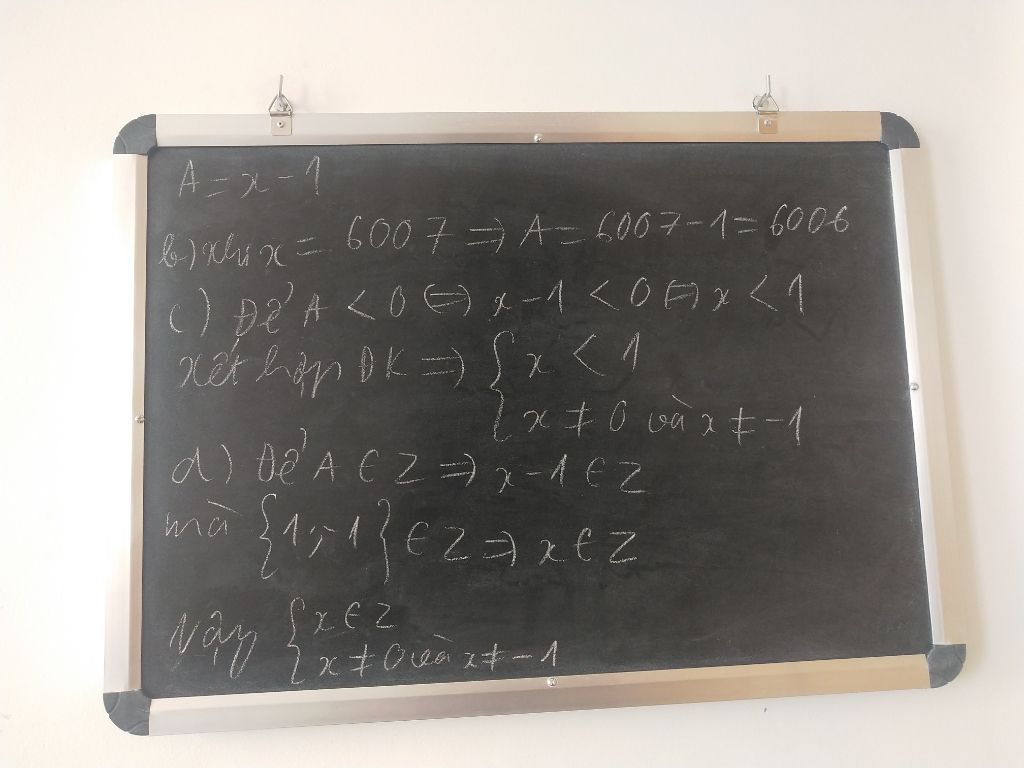 A = x - 1
b) khi x = 6007 => A = 6007 - 1 = 6006
c) Để A < 0 <=> x - 1 < 0 <=> x < 1
xét hợp ĐK => { x < 1
x ≠ 0 và x ≠ -1
d) Để A ∈ Z => x - 1 ∈ Z
mà {1; -1} ∈ Z => x ∈ Z
Vậy { x ∈ Z
x ≠ 0 và x ≠ -1